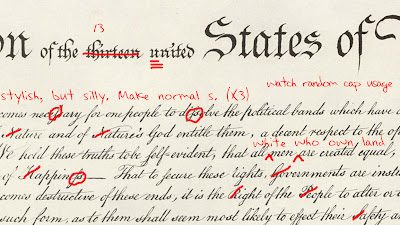 13
on of the thirteen united States of
watch random cap usage
stylish, but silly. Make normal s. (X3)
comes neceſsary for one people to diſsolve the political bands which have
Nature and of Nature's God entitle them, a decent respect to the op
white who own land
We hold these truths to be self-evident, that all men are created equal,
of Happineſs — That to secure these rights, Governments are insti
comes destructive of these ends, it is the Right of the People to alter or
such form, as to them shall seem most likely to effect their Safety a